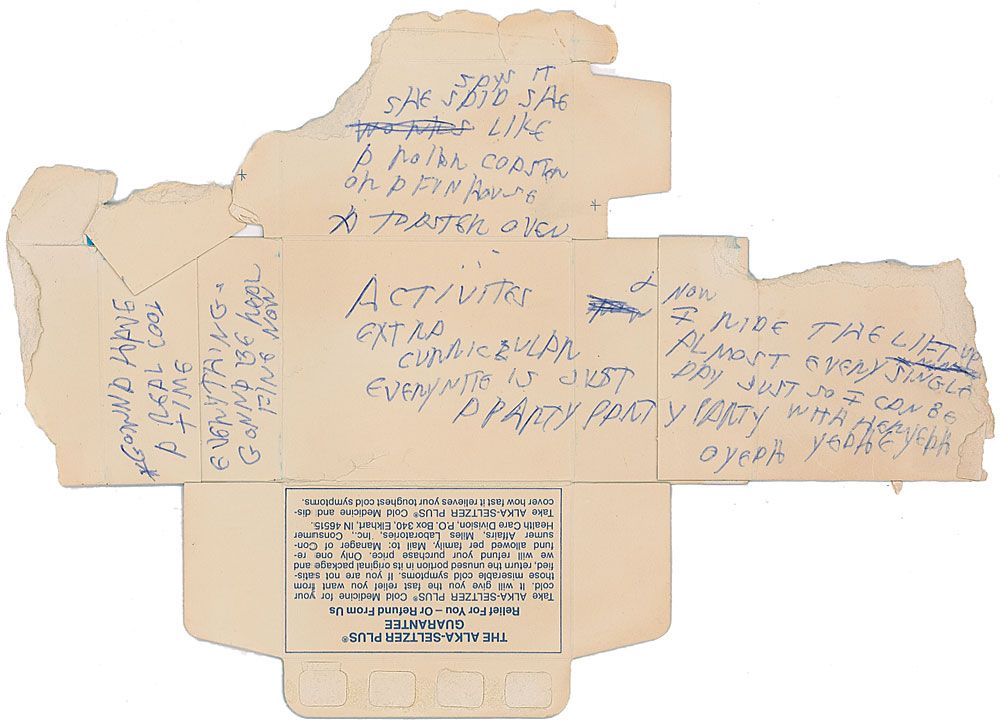 SAYS IT
SHE SAID SHE
LIKE
A ROLLER COASTER
OR A FUNHOUSE
A TOASTER OVEN
GONNA HAVE
A REAL COOL
TIME
EVERYTHING
GONNA BE REAL
FINE NOW
ACTIVITES
EXTRA
CURRICBULAR
EVERYNITE IS JUST
A PARTY PARTY PARTY WHA HER YEAH
& NOW
I RIDE THE LIFT UP
ALMOST EVERY SINGLE
DAY JUST SO I CAN BE
OYEAH YEAHEYEAH
THE ALKA-SELTZER PLUS®
GUARANTEE
Relief For You – Or Refund From Us
Take ALKA-SELTZER PLUS® Cold Medicine for your
cold. It will give you the fast relief you want from
those miserable cold symptoms. If you are not satis-
fied, return the unused portion in its original package and
we will refund your purchase price. Only one re-
fund allowed per family. Mail to: Manager of Con-
sumer Affairs, Miles Laboratories, Inc., Consumer
Health Care Division, P.O. Box 340, Elkhart, IN 46515.
Take ALKA-SELTZER PLUS® Cold Medicine and dis-
cover how fast it relieves your toughest cold symptoms.